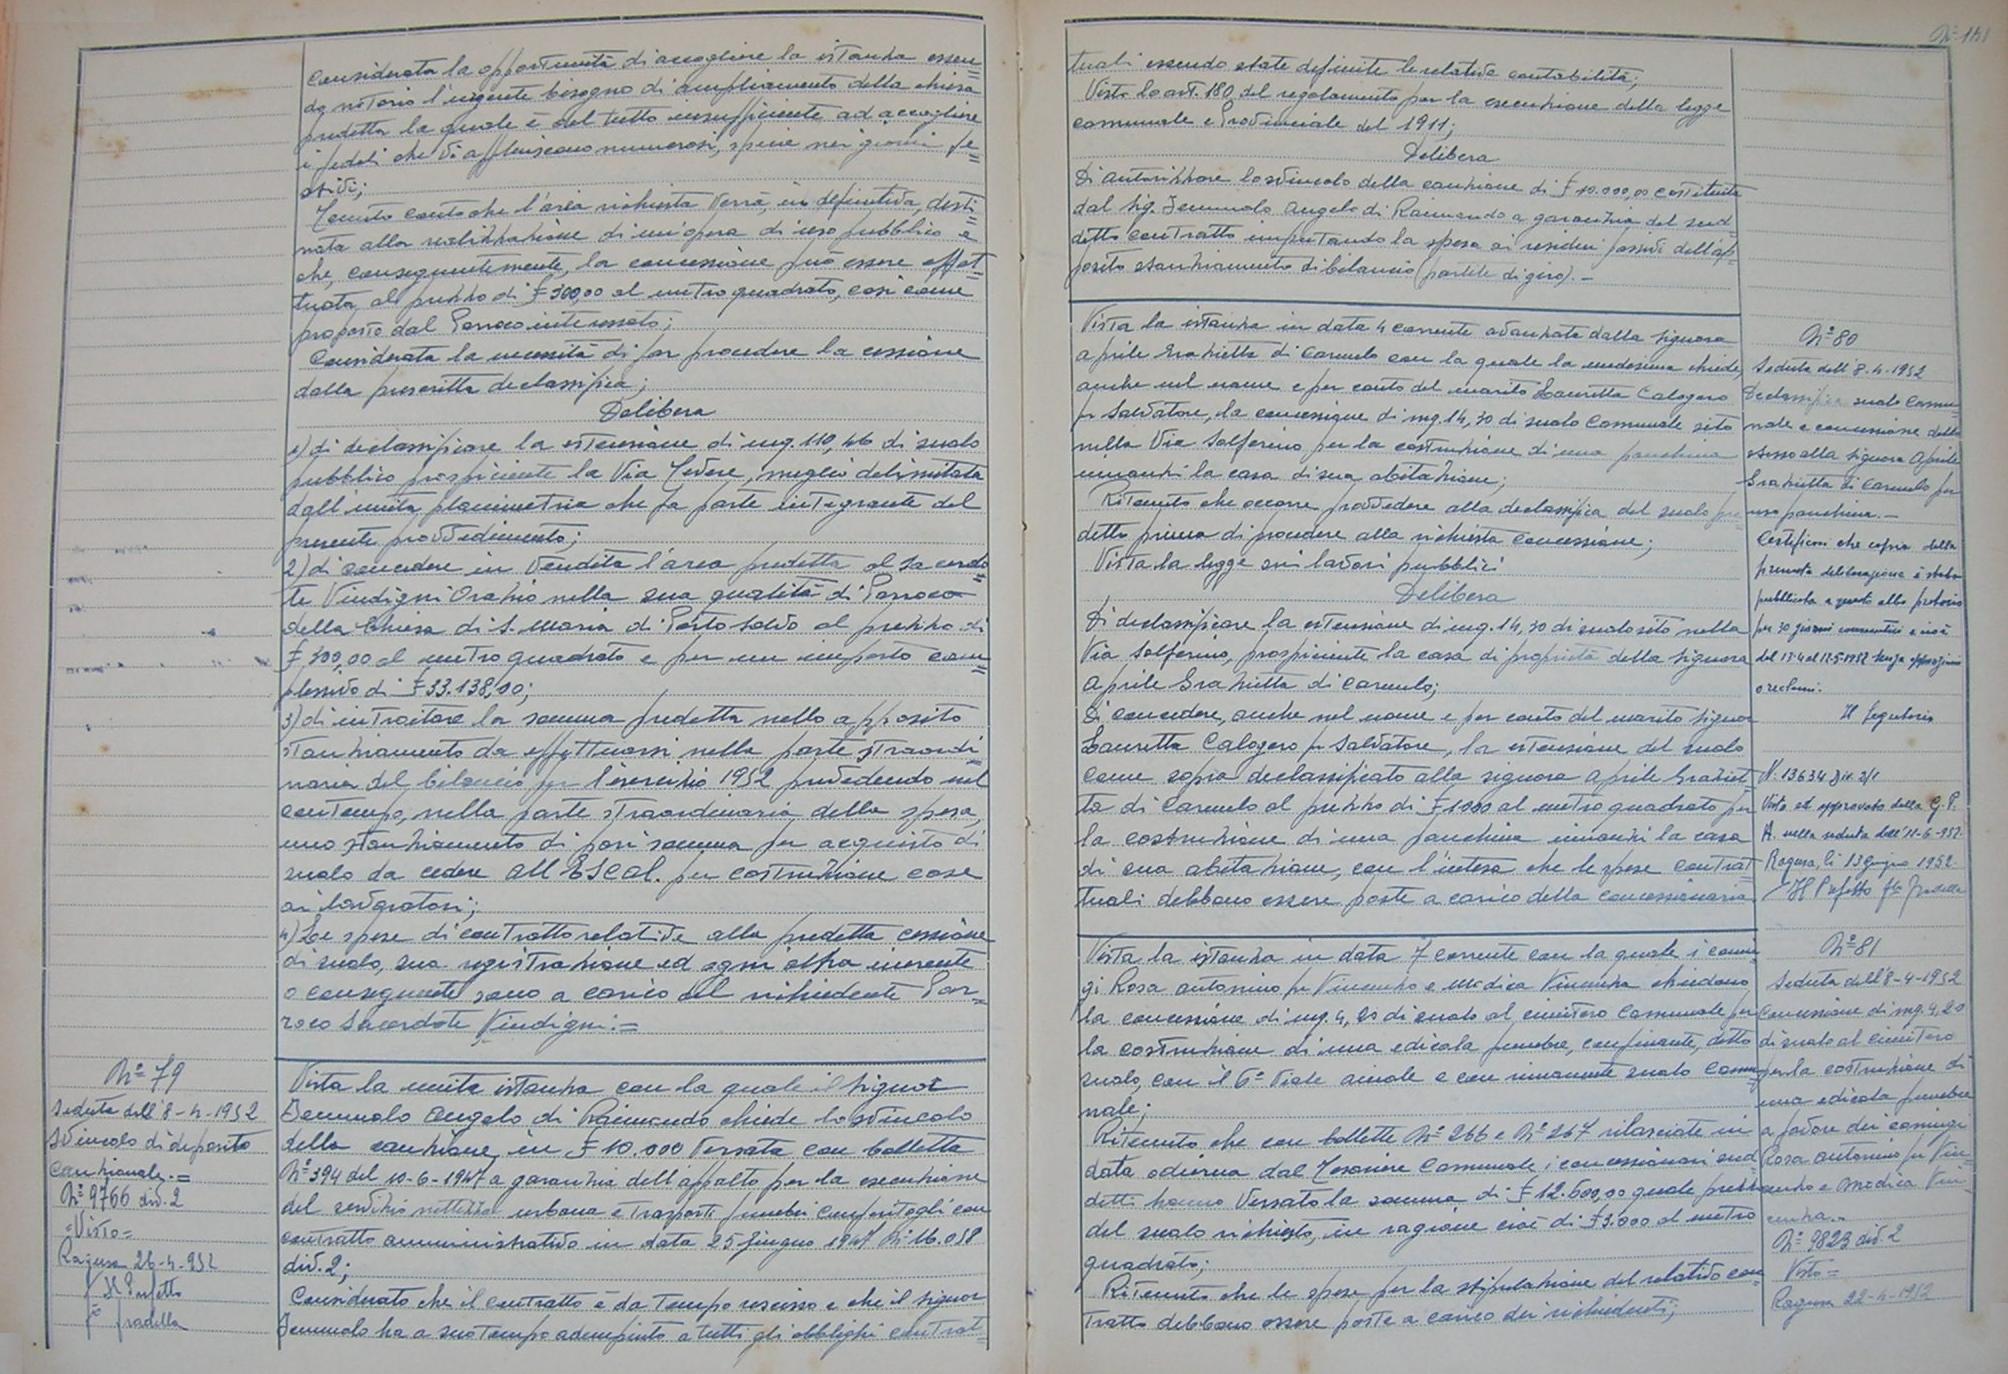 Considerata la opportunità di accogliere la istanza essen=
do notorio l'urgente bisogno di ampliamento della chiesa
predetta la quale è del tutto insufficiente ad accogliere
i fedeli che vi affluiscono numerosi, specie nei giorni fe=
stivi;
Tenuto conto che l'area richiesta verrà, in definitiva, desti=
nata alla realizzazione di un'opera di uso pubblico e
che, conseguentemente, la concessione può essere effet=
tuata al prezzo di £ 300,00 al metro quadrato, così come
proposto dal Parroco interessato;
Considerata la necessità di far precedere la cessione
dalla prescritta declassifica;
Delibera
1) di declassificare la estensione di mq. 110,46 di suolo
pubblico prospiciente la Via, meglio delimitata
dall'unita planimetria che fa parte integrante del
presente provvedimento;
2) di concedere in vendita l'area predetta al Sacerdo=
te Vindigni Orazio nella sua qualità di Parroco
della Chiesa di S. Maria di Porto Salvo al prezzo di
£ 300,00 al metro quadrato e per un importo com=
plessivo di £ 33.138,00;
3) di introitare la somma predetta nello apposito
stanziamento da effettuarsi nella parte straordi=
naria del bilancio per l'esercizio 1952 prevedendo nel
contempo, nella parte straordinaria della spesa,
uno stanziamento di pari somma per acquisto di
suolo da cedere all'ESCAL. per costruzione case
ai lavoratori;
4) Le spese di contratto relative alla predetta cessione
di suolo, sua registrazione ed ogni altra inerente
o conseguente sono a carico del richiedente Par=
roco Sacerdote Vindigni.=
Nº 79
Seduta dell'8-4-1952
Svincolo di deposito
cauzionale.=
Nº 9766 div. 2
=Visto=
Ragusa 26-4-952
Il Prefetto
fº Pradella
Vista la unita istanza con la quale il Signor
Iemmolo Angelo di Raimondo chiede lo svincolo
della cauzione in £ 10.000 versata con bolletta
Nº 394 del 10-6-1947 a garanzia dell'appalto per la esecuzione
del servizio nettezza urbana e trasporti funebri conferitogli con
contratto amministrativo in data 25 giugno 1947 Nº 16.058
div. 2;
Considerato che il contratto è da tempo rescisso e che il Signor
Iemmolo ha a suo tempo adempiuto a tutti gli obblighi contrat=
Nº 141
tuali essendo state definite le relative contabilità;
Visto lo art. 180 del regolamento per la esecuzione della legge
comunale e Provinciale del 1911;
Delibera
Di autorizzare lo svincolo della cauzione di £ 10.000,00 costituita
dal Sig. Iemmolo Angelo di Raimondo a garanzia del sud=
detto contratto imputando la spesa ai residui passivi dell'ap=
posito stanziamento di bilancio (partite di giro).=
Vista la istanza in data 4 corrente avanzata dalla Signora
Aprile Grazietta di Carmelo con la quale la medesima chiede,
anche nel nome e per conto del marito Lauretta Calogero
fu Salvatore, la concessione di mq. 14,30 di suolo Comunale sito
nella Via Solferino per la costruzione di una panchina
innanzi la casa di sua abitazione;
Ritenuto che occorre provvedere alla declassifica del suolo pre
detto prima di procedere alla richiesta concessione;
Vista la legge sui lavori pubblici
Delibera
Di declassificare la estensione di mq. 14,30 di suolo sito nella
Via Solferino, prospiciente la casa di proprietà della Signora
Aprile Grazietta di Carmelo;
Di concedere, anche nel nome e per conto del marito Signor
Lauretta Calogero fu Salvatore, la estensione del suolo
come sopra declassificato alla Signora Aprile Graziet=
ta di Carmelo al prezzo di £ 1000 al metro quadrato per
la costruzione di una panchina innanzi la casa
di sua abitazione, con l'intesa che le spese contrat=
tuali debbano essere poste a carico della concessionaria.
Nº 80
Seduta dell'8-4-1952
Declassifica suolo Comu=
nale e concessione dello
stesso alla Signora Aprile
Grazietta di Carmelo per
uso panchina.=
Certifico che copia della
presente deliberazione è stata
pubblicata a questo albo pretorio
per 30 giorni consecutivi e cioè
dal 13-4 al 12-5-1952 senza opposizioni
o reclami.
Il Segretario
N. 13634 div. 2/1
Visto ed approvato dalla G. P.
A. nella seduta dell'11-6-952
Ragusa, lì 13 giugno 1952
Il Prefetto fto Pradella
Vista la istanza in data 7 corrente con la quale i coniu=
gi Rosa Antonino fu Vincenzo e Modica Vincenza chiedono
la concessione di mq. 4,20 di suolo al cimitero Comunale per
la costruzione di una edicola funebre, confinante, detto
suolo, con il 6º Viale ainale e con rimanente suolo Comu=
nale;
Ritenuto che con bollette Nº 266 e Nº 267 rilasciate in
data odierna dal Tesoriere Comunale i concessionari sud
detti hanno versato la somma di £ 12.600,00 quale prezzo
del suolo richiesto, in ragione cioè di £ 3.000 al metro
quadrato;
Ritenuto che le spese per la stipulazione del relativo con
tratto debbano essere poste a carico dei richiedenti;
Nº 81
Seduta dell'8-4-1952
Concessione di mq. 4,20
di suolo al cimitero
per la costruzione di
una edicola funebre
a favore dei coniugi
Rosa Antonino fu Vin=
cenzo e Modica Vin=
cenza.=
Nº 9823 div. 2
Visto=
Ragusa 22-4-1952